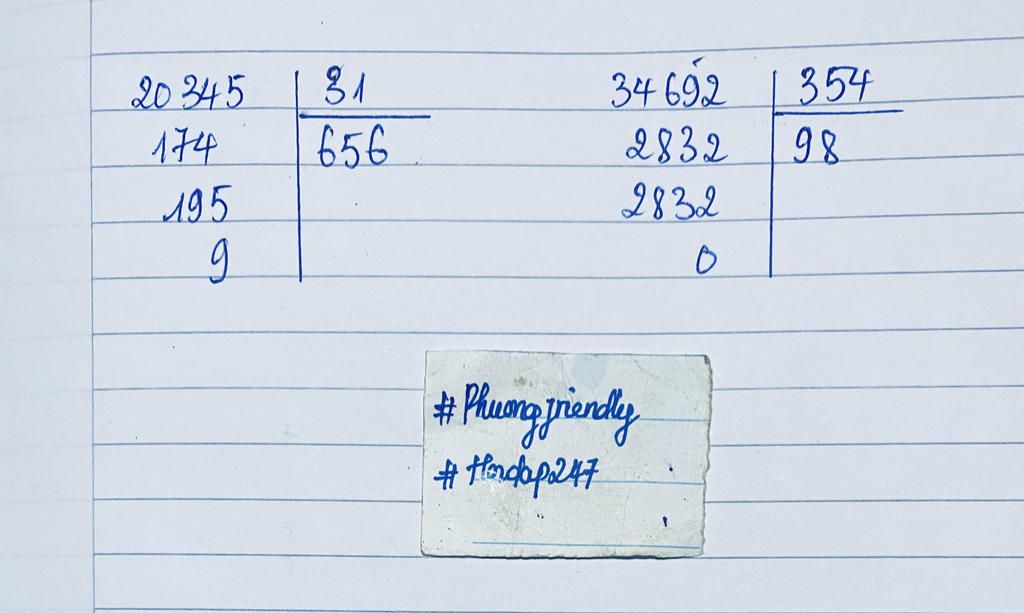 20345 31
174 656
195
9
34692 354
2832 98
2832
0
#Phuongfriendly
#Hoidap247